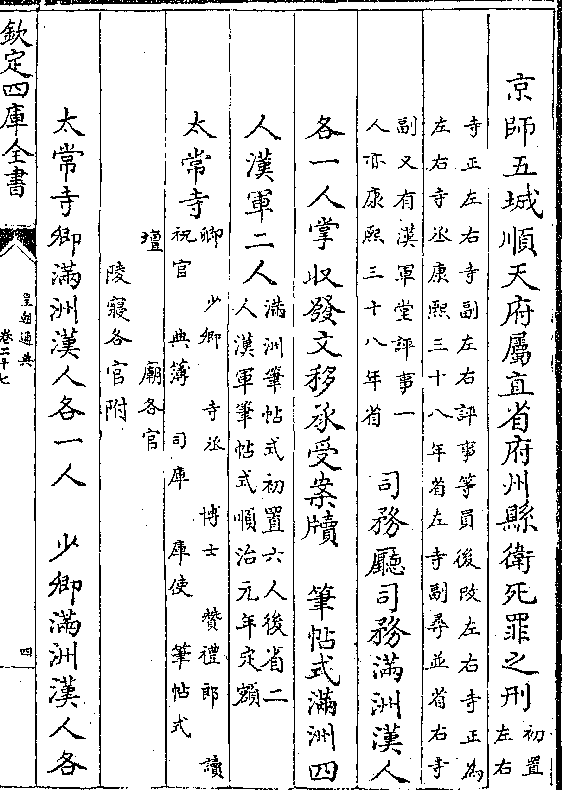 京師五城順天府屬直省府州縣衛死罪之刑初置
左右
寺正左右寺副左右評事等員後改左右寺正為
左右寺丞康熙三十八年省左寺副尋並省右寺
副又有漢軍堂評事一
人亦康熙三十八年省
司務廳司務滿洲漢人
各一人掌收發文移承受案牘 筆帖式滿洲四
人漢軍二人滿洲筆帖式初置六人後省二
人漢軍筆帖式順治元年定額
太常寺卿 少卿 寺丞 博士 贊禮郎 讀
祝官 典簿 司庫 庫使 筆帖式
壇 廟各官
陵寢各官附
太常寺卿滿洲漢人各一人 少卿滿洲漢人各
欽定四庫全書
皇朝通典
卷二十七
四